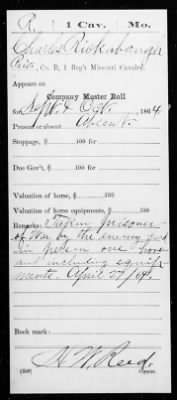 R. 1 Cav. Mo.
Charles Rickabaugh
Priv., Co. B, 1 Reg't Missouri Cavalry.
Appears on
Company Muster Roll
for Sept & Oct, 1864.
Present or absent Absent
Stoppage, $ 100 for
Due Gov't, $ 100 for
Valuation of horse, $ 100
Valuation of horse equipments, $ 100
Remarks: Taken prisoner
of War by the enemy
one horse
and including equip
ments. April 27/64.
Book mark:
H W Reed
(358) Copyist.